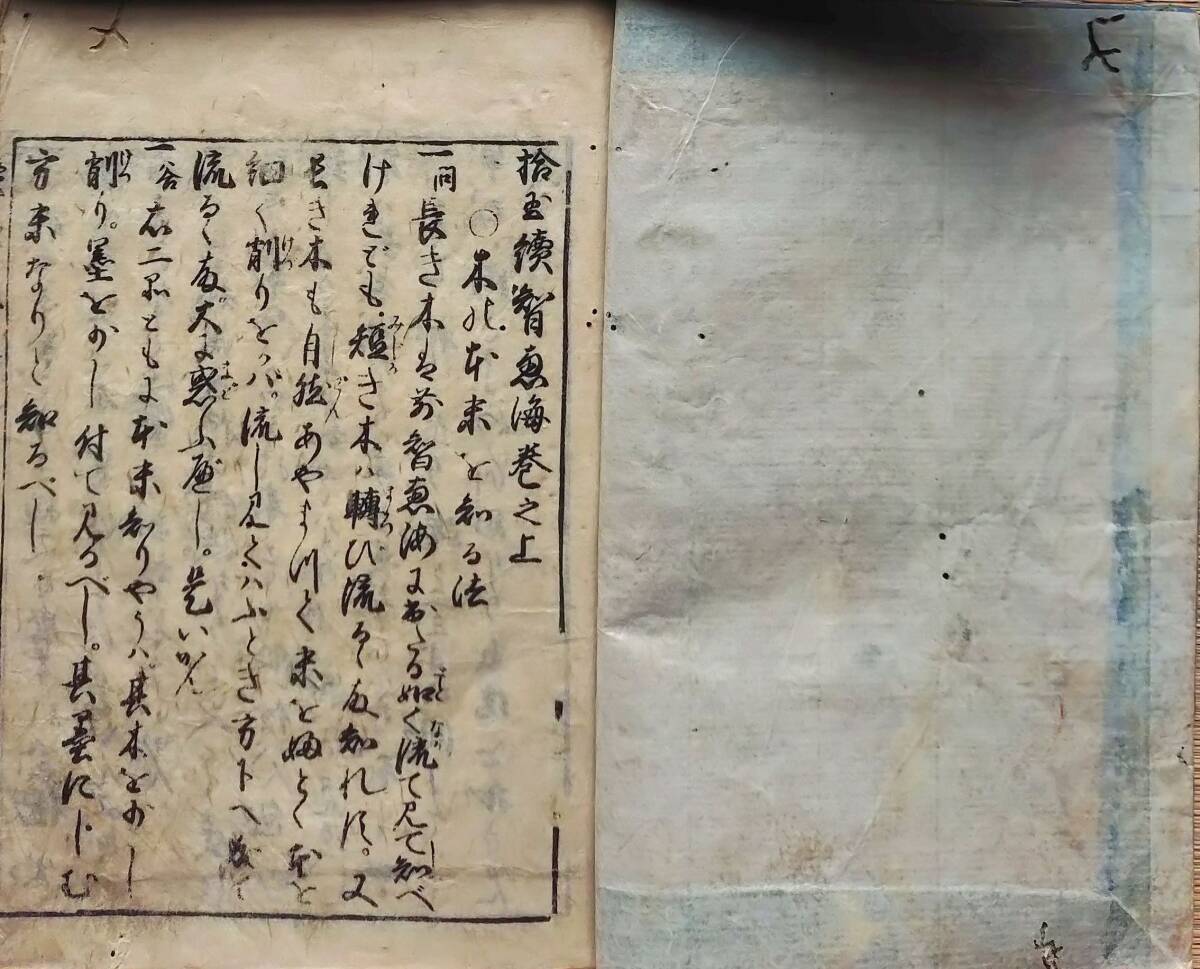 拾玉續智惠海巻之上
○木の本末を知る法
一問長き木は前智惠海に出たる如く流て見て知べ
けれども短き木ハ轉び流るゝ故知れず。又
長き木も自然あやまつて末を
細く削りをかバ。流し見るときハふとき方下へ
流るゝ故。大に惑ふ べし。是いかん
一答右二品ともに本末知りやうハ其木を少し
削り。墨を少し付て見るべし。其墨にじむ
方末なりと知るべし